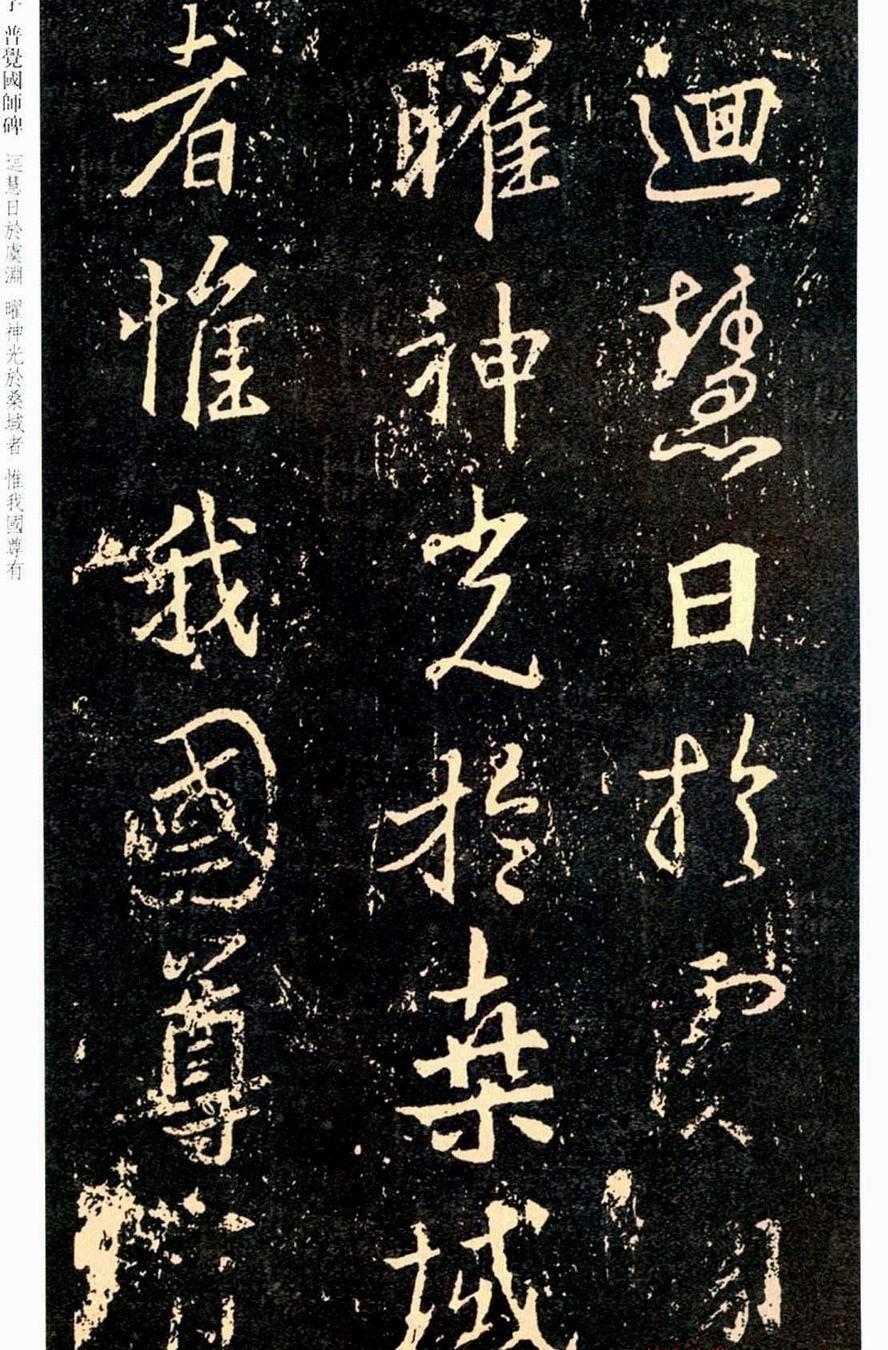 迴慧日於虞淵
曜神光於桒域
者惟我國尊有
普覺國師碑 迴慧日於虞淵 曜神光於桑域者 惟我國尊有